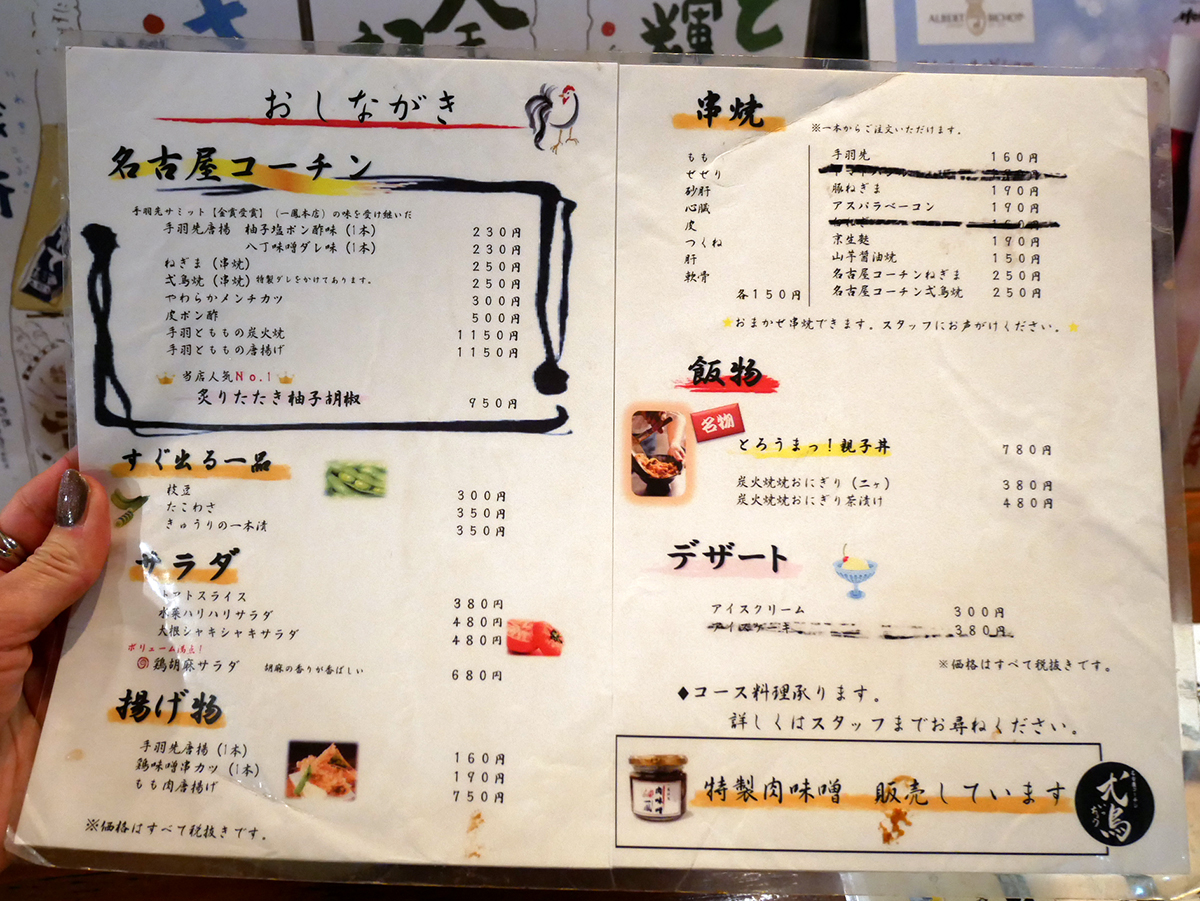 おしながき
名古屋コーチン
手羽先サミット【金賞受賞】(一鳳本店)の味を受け継いだ
手羽先唐揚 柚子塩ポン酢味(1本) 230円
八丁味噌ダレ味(1本) 230円
ねぎま(串焼) 250円
弍鳥焼(串焼)特製ダレをかけてあります。 250円
やわらかメンチカツ 300円
皮ポン酢 500円
手羽とももの炭火焼 1150円
手羽とももの唐揚げ 1150円
当店人気No.1
炙りたたき柚子胡椒 950円
すぐ出る一品
枝豆 300円
たこわさ 350円
きゅうりの一本漬 350円
サラダ
トマトスライス 380円
水菜ハリハリサラダ 480円
大根シャキシャキサラダ 480円
ボリューム満点!
鶏胡麻サラダ 胡麻の香りが香ばしい 680円
揚げ物
手羽先唐揚(1本) 160円
鶏味噌串カツ(1本) 190円
もも肉唐揚げ 750円
※価格はすべて税抜きです。
串焼
※一本からご注文いただけます。
もも
せせり
砂肝
心臓
皮
つくね
肝
軟骨
各150円
手羽先 160円
豚ねぎま 190円
アスパラベーコン 190円
京生麩 190円
山芋醤油焼 150円
名古屋コーチンねぎま 250円
名古屋コーチン弍鳥焼 250円
おまかせ串焼できます。スタッフにお声がけください。
飯物
名物
とろうまっ!親子丼 780円
炭火焼焼おにぎり(二ヶ) 380円
炭火焼焼おにぎり茶漬け 480円
デザート
アイスクリーム 300円
380円
※価格はすべて税抜きです。
◆コース料理承ります。
詳しくはスタッフまでお尋ねください。
特製肉味噌 販売しています
肉味噌
ALBERT BICHOT
輝